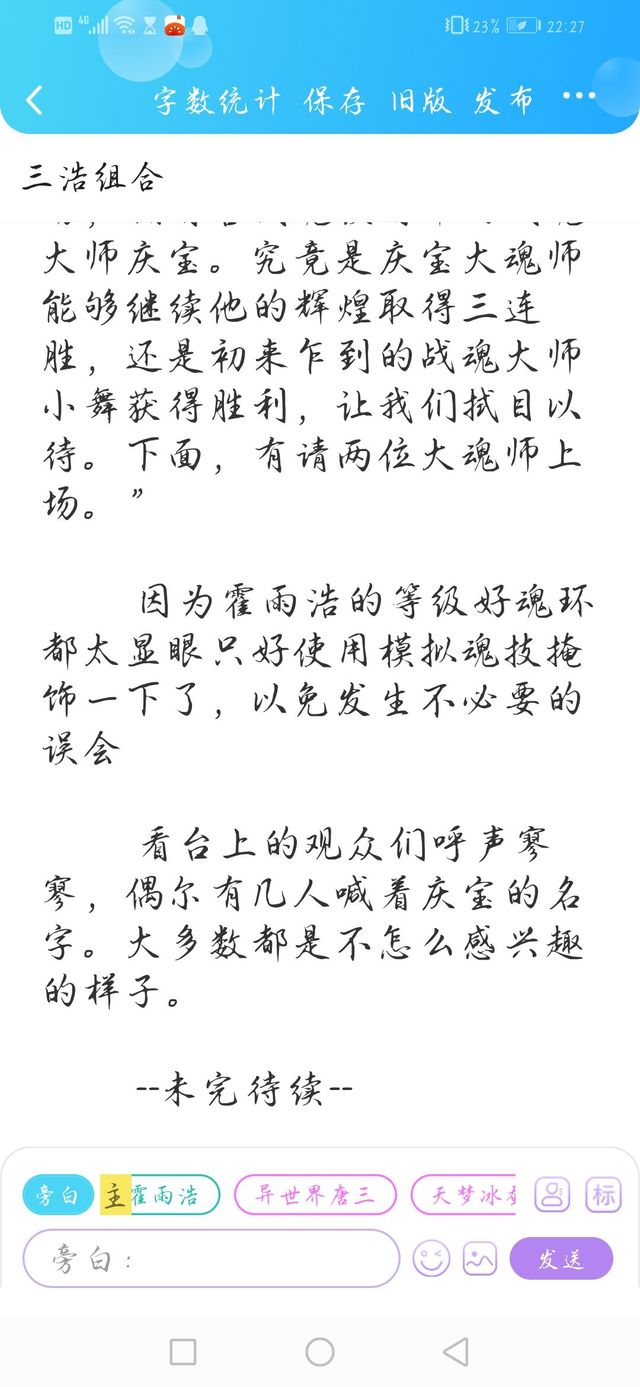 HD 4G 23% 22:27
字数统计 保存 旧版 发布 ...
三浩组合
大师庆宝。究竟是庆宝大魂师
能够继续他的辉煌取得三连
胜，还是初来乍到的战魂大师
小舞获得胜利，让我们拭目以
待。下面，有请两位大魂师上
场。”
因为霍雨浩的等级好魂环
都太显眼只好使用模拟魂技掩
饰一下了，以免发生不必要的
误会
看台上的观众们呼声寥
寥，偶尔有几人喊着庆宝的名
字。大多数都是不怎么感兴趣
的样子。
--未完待续--
旁白 主 霍雨浩 异世界唐三 天梦冰 标
旁白： 发送